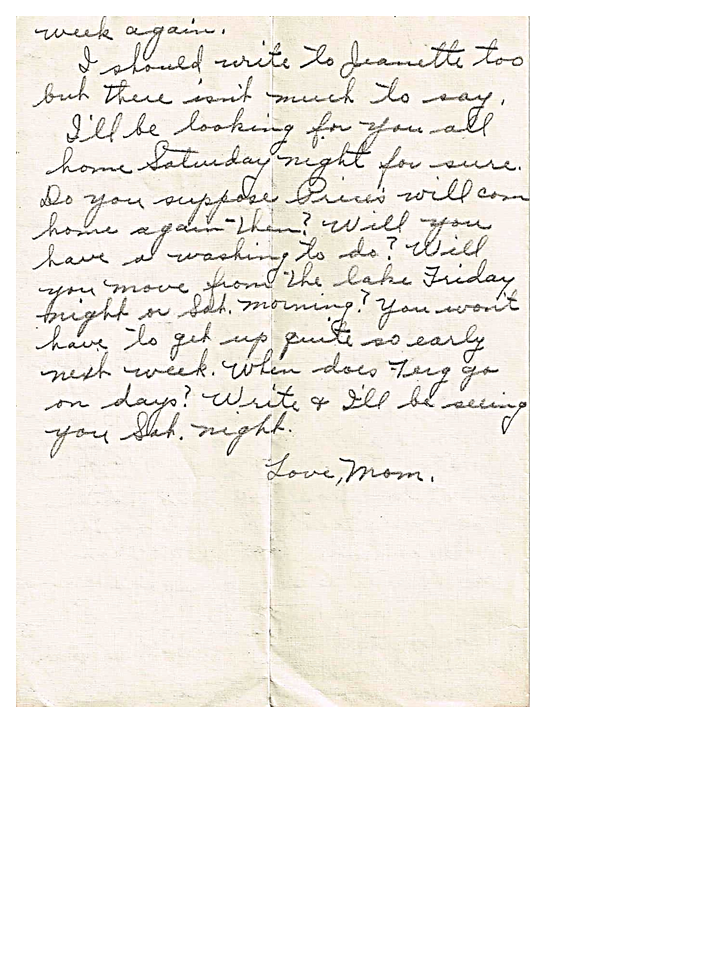 week again.
I should write to Jeanette too
but there isn't much to say.
I'll be looking for you all
home Saturday night for sure.
Do you suppose Price's will com
home again then? Will you
have a washing to do? Will
you move from the lake Friday
night or Sat. morning? You won't
have to get up quite so early
next week. When does Ferg go
on days? Write & I'll be seeing
you Sat. night.
Love, Mom.